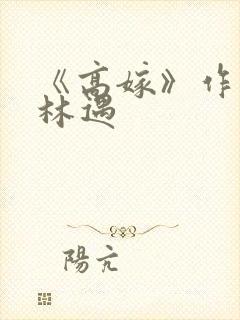 《高嫁》作
林遇
陽亢